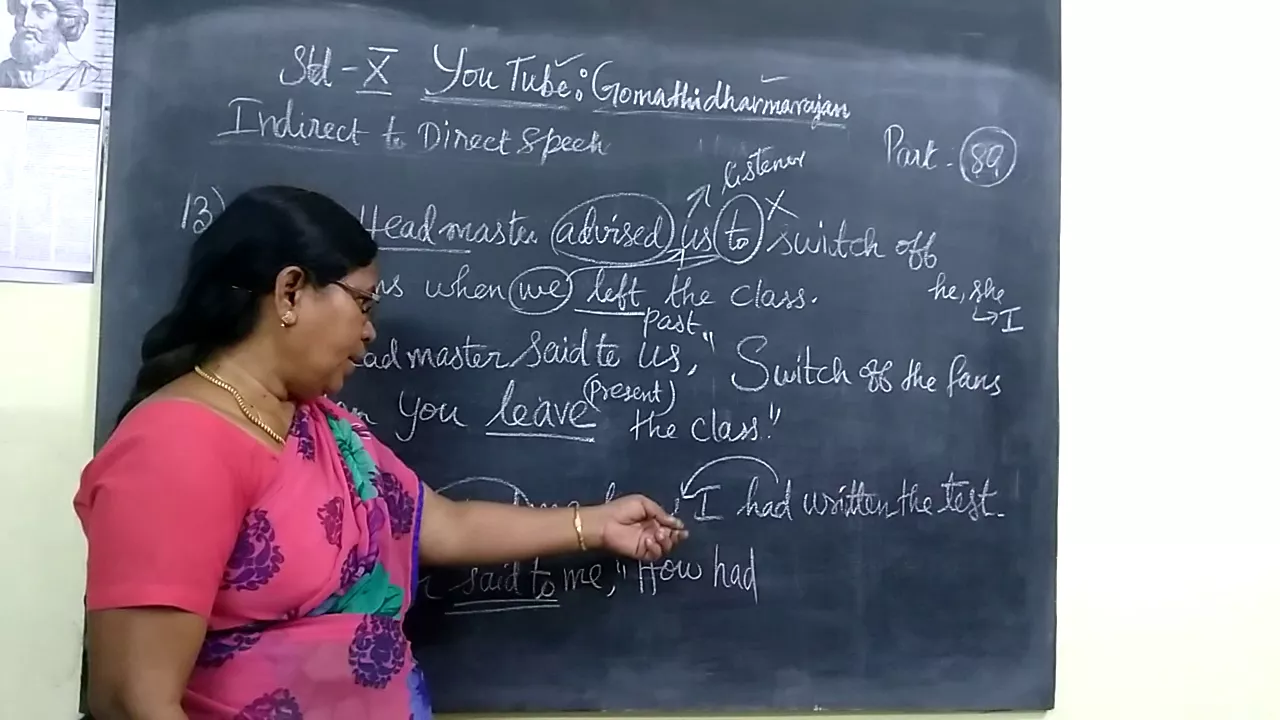 Std - X YouTube: Gomathidharmarajan
Indirect to Direct Speech
Part - 89
listener
13) Headmaster advised us to X switch off
when we left the class.
he, she
I
past
master said to us, "Switch off the fans
you leave (present) the class."
I had written the test.
said to me, "How had